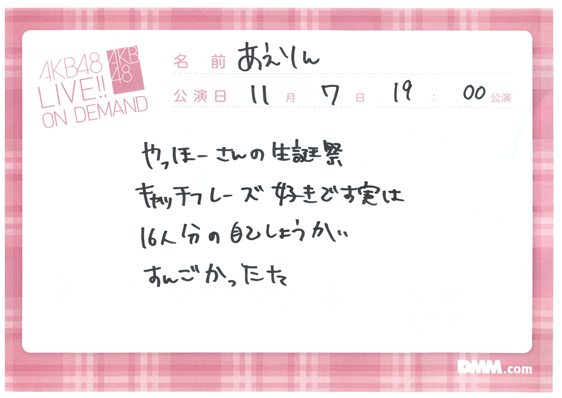 AKB48
LIVE!!
ON DEMAND
AKB
48
名前 あえりん
公演日 11月 7日 19:00公演
やっほーさんの生誕祭
キャッチフレーズ好きです実は
16人分の自己しょうかい
すんごかったた
DMM.com